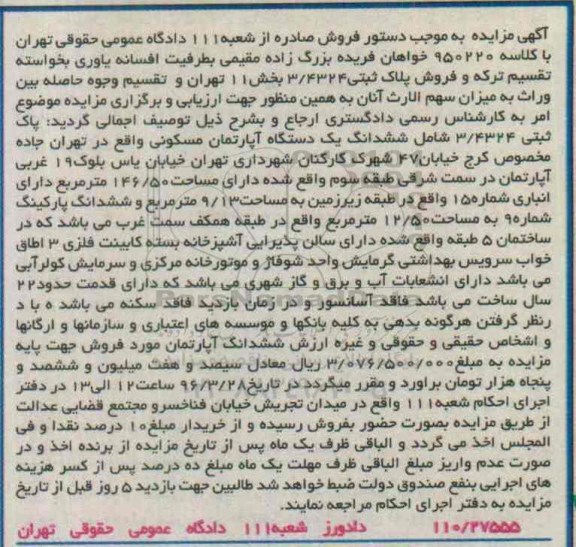 آگهی مزایده به موجب دستور فروش صادره از شعبه۱۱۱ دادگاه عمومی حقوقی تهران
با کلاسه ۹۵۰۲۲۰ خواهان فریده بزرگ زاده مقیمی بطرفیت افسانه یاوری بخواسته
تقسیم ترکه و فروش پلاک ثبتی۳/۴۳۲۴ بخش۱۱ تهران و تقسیم وجوه حاصله بین
وراث به میزان سهم الارث آنان به همین منظور جهت ارزیابی و برگزاری مزایده موضوع
امر به کارشناس رسمی دادگستری ارجاع و بشرح ذیل توصیف اجمالی گردید: پاک
ثبتی ۳/۴۳۲۴ شامل ششدانگ یک دستگاه آپارتمان مسکونی واقع در تهران جاده
مخصوص کرج خیابان۴۷ شهرک کارکنان شهرداری تهران خیابان یاس بلوک۱۹ غربی
آپارتمان در سمت شرقی طبقه سوم واقع شده دارای مساحت۱۴۶/۵۰ مترمربع دارای
انباری شماره۱۵ واقع در طبقه زیرزمین به مساحت۹/۱۳ مترمربع و ششدانگ پارکینگ
شماره۹ به مساحت۱۲/۵۰ مترمربع واقع در طبقه همکف سمت غرب می باشد که در
ساختمان ۵ طبقه واقع شده دارای سالن پذیرایی آشپزخانه بسته کابینت فلزی ۳ اطاق
خواب سرویس بهداشتی گرمایش واحد شوفاژ و موتورخانه مرکزی و سرمایش کولرآبی
می باشد دارای انشعابات آب و برق و گاز شهری می باشد که دارای قدمت حدود۲۲
سال ساخت می باشد فاقد آسانسور و در زمان بازدید فاقد سکنه می باشد ه با د
رنظر گرفتن هرگونه بدهی به کلیه بانکها و موسسه های اعتباری و سازمانها و ارگانها
و اشخاص حقیقی و حقوقی و غیره ارزش ششدانگ آپارتمان مورد فروش جهت پایه
مزایده به مبلغ۳/۰۷۶/۵۰۰/۰۰۰ ریال معادل سیصد و هفت میلیون و ششصد و
پنجاه هزار تومان براورد و مقرر میگردد در تاریخ۹۶/۳/۲۸ ساعت۱۲ الی۱۳ در دفتر
اجرای احکام شعبه۱۱۱ واقع در میدان تجریش خیابان فناخسرو مجتمع قضایی عدالت
از طریق مزایده بصورت حضور بفروش رسیده و از خریدار مبلغ۱۰ درصد نقدا و فی
المجلس اخذ می گردد و الباقی ظرف یک ماه پس از تاریخ مزایده از برنده اخذ و در
صورت عدم واریز مبلغ الباقی ظرف مهلت یک ماه مبلغ ده درصد پس از کسر هزینه
های اجرایی بنفع صندوق دولت ضبط خواهد شد طالبین جهت بازدید ۵ روز قبل از تاریخ
مزایده به دفتر اجرای احکام مراجعه نمایند.
۱۱۰/۲۷۵۵۵ دادورز شعبه۱۱۱ دادگاه عمومی حقوقی تهران